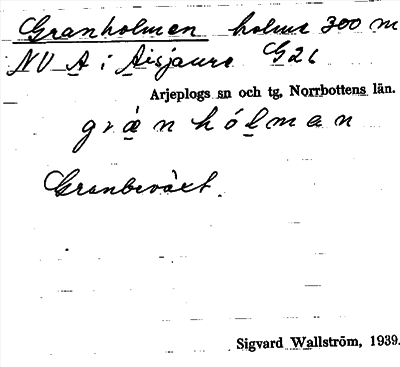 Granholmen holme 300 m
NV A i Aisjaure G26
Arjeplogs sn och tg, Norrbottens län.
gràn hólman
Granbeväxt.
Sigvard Wallström, 1939.